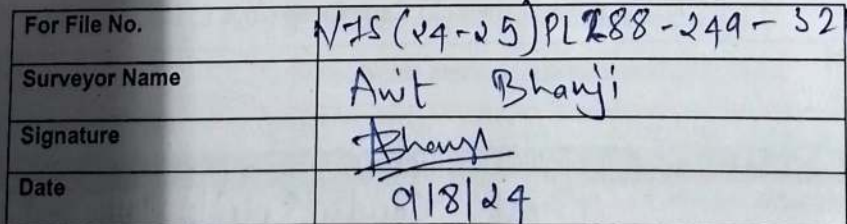 For File No. VIS (24-25) PL288-249-32
Surveyor Name Anit Bhanji
Signature Bhanji
Date 9/8/24